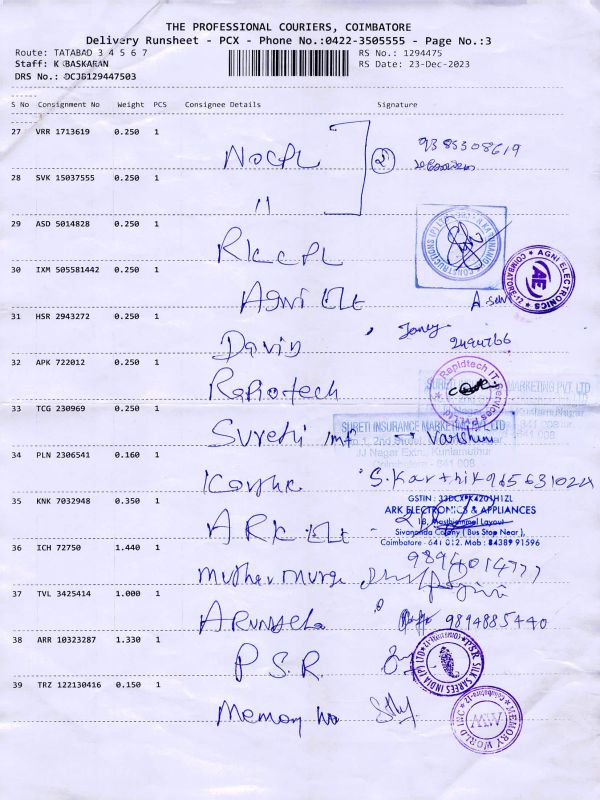 THE PROFESSIONAL COURIERS, COIMBATORE
Delivery Runsheet - PCX - Phone No.:0422-3505555 - Page No.:3
Route: TATABAD 3 4 5 6 7
RS No.: 1294475
Staff: K BASKARAN
RS Date: 23-Dec-2023
DRS No.: DCJB129447503
S No Consignment No Weight PCS Consignee Details Signature
27 VRR 1713619 0.250 1
NOCPL
2
9385308619
28 SVK 15037555 0.250 1
"
29 ASD 5014828 0.250 1
RKCCPL
CONSTRUCTIONS (P) LTD
30 IXM 505581442 0.250 1
Agni Ele
AGNI ELECTRONICS
AE
COIMBATORE-12
31 HSR 2943272 0.250 1
David
2494766
32 APK 722012 0.250 1
Rapiotech
Rapidtech IT Services (P) Ltd
33 TCG 230969 0.250 1
Sureti
SURETI INSURANCE MARKETING PVT LTD
JJ Nagar Extn., Kuniamuthur
Varshini
34 PLN 2306541 0.160 1
S.Karthik 9656310224
35 KNK 7032948 0.350 1
ARK Ele
GSTIN : 33DCXPK4201H1ZL
ARK ELECTRONICS & APPLIANCES
18, Masthiammal Layout
Sivananda Colony ( Bus Stop Near ),
Coimbatore - 641 012. Mob : 84389 91596
36 ICH 72750 1.440 1
9894014777
37 TVL 3425414 1.000 1
9894885440
38 ARR 10323287 1.330 1
P.S.R.
PSR SILK SAREES INDIA (P) LTD
39 TRZ 122130416 0.150 1
Memory Wo
MEMORY WORLD INC
Coimbatore-12
MW